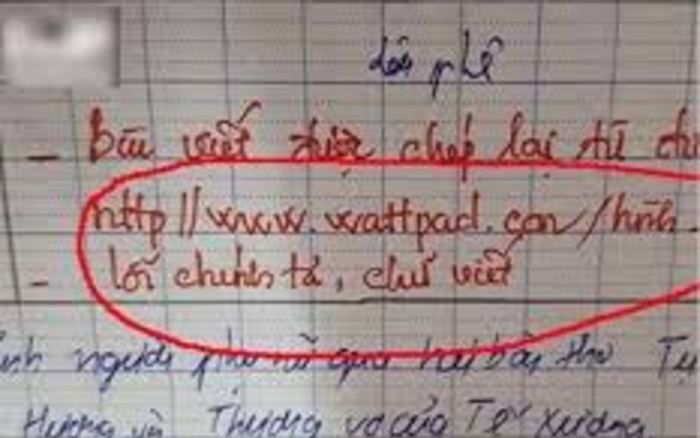 Lời phê
- Bài viết được chép lại từ
http//www.wattpad.com/hình
- lỗi chính tả, chữ viết
ảnh người phụ nữ qua hai bài thơ Tự
Hương và Thương vợ của Tế Xương